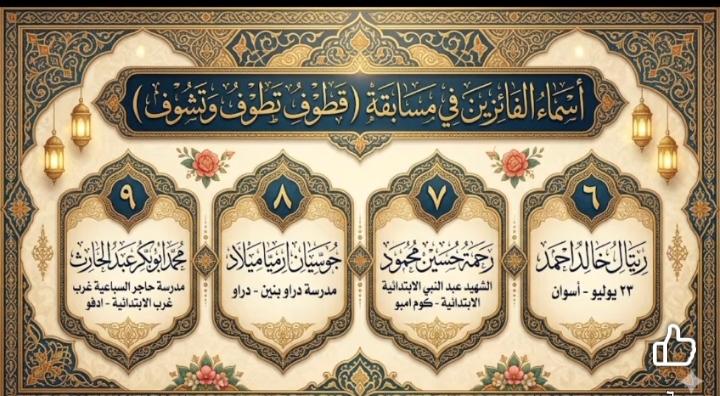 أسماء الفائزين في مسابقة (قطوف تطوف وتشوف)
٦
ريتال خالد احمد
٢٣ يوليو - أسوان
٧
رحمة حسين محمود
الشهيد عبد النبي الابتدائية
الابتدائية - كوم امبو
٨
جوسيان ارميا ميلاد
مدرسة دراو بنين - دراو
٩
محمد ابوبكر عبد الحارث
مدرسة حاجر السباعية غرب
غرب الابتدائية - ادفو